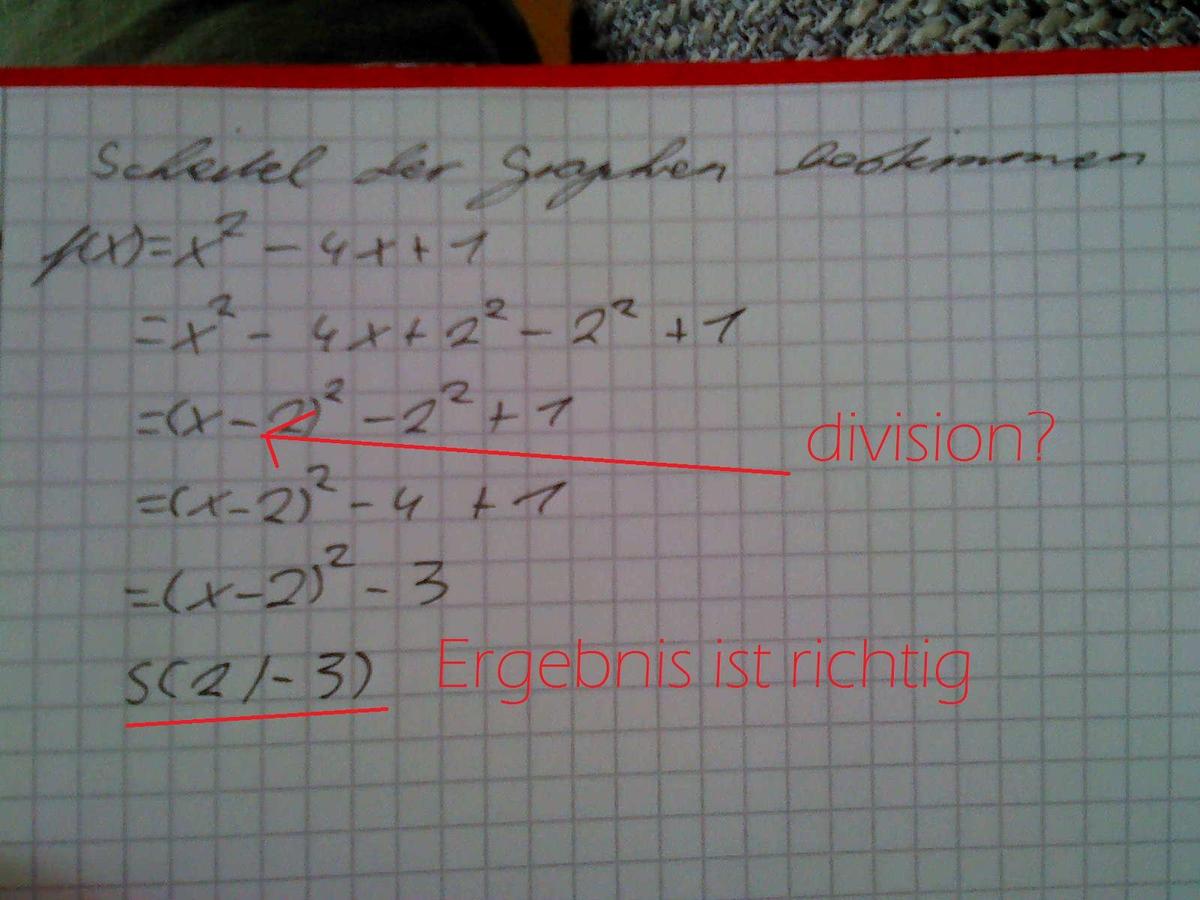 Scheitel der Graphen bestimmen
f(x)=x² - 4x + 1
=x² - 4x + 2² - 2² + 1
=(x - 2)² - 2² + 1
division?
=(x-2)² - 4 + 1
=(x-2)² - 3
S(2/-3) Ergebnis ist richtig